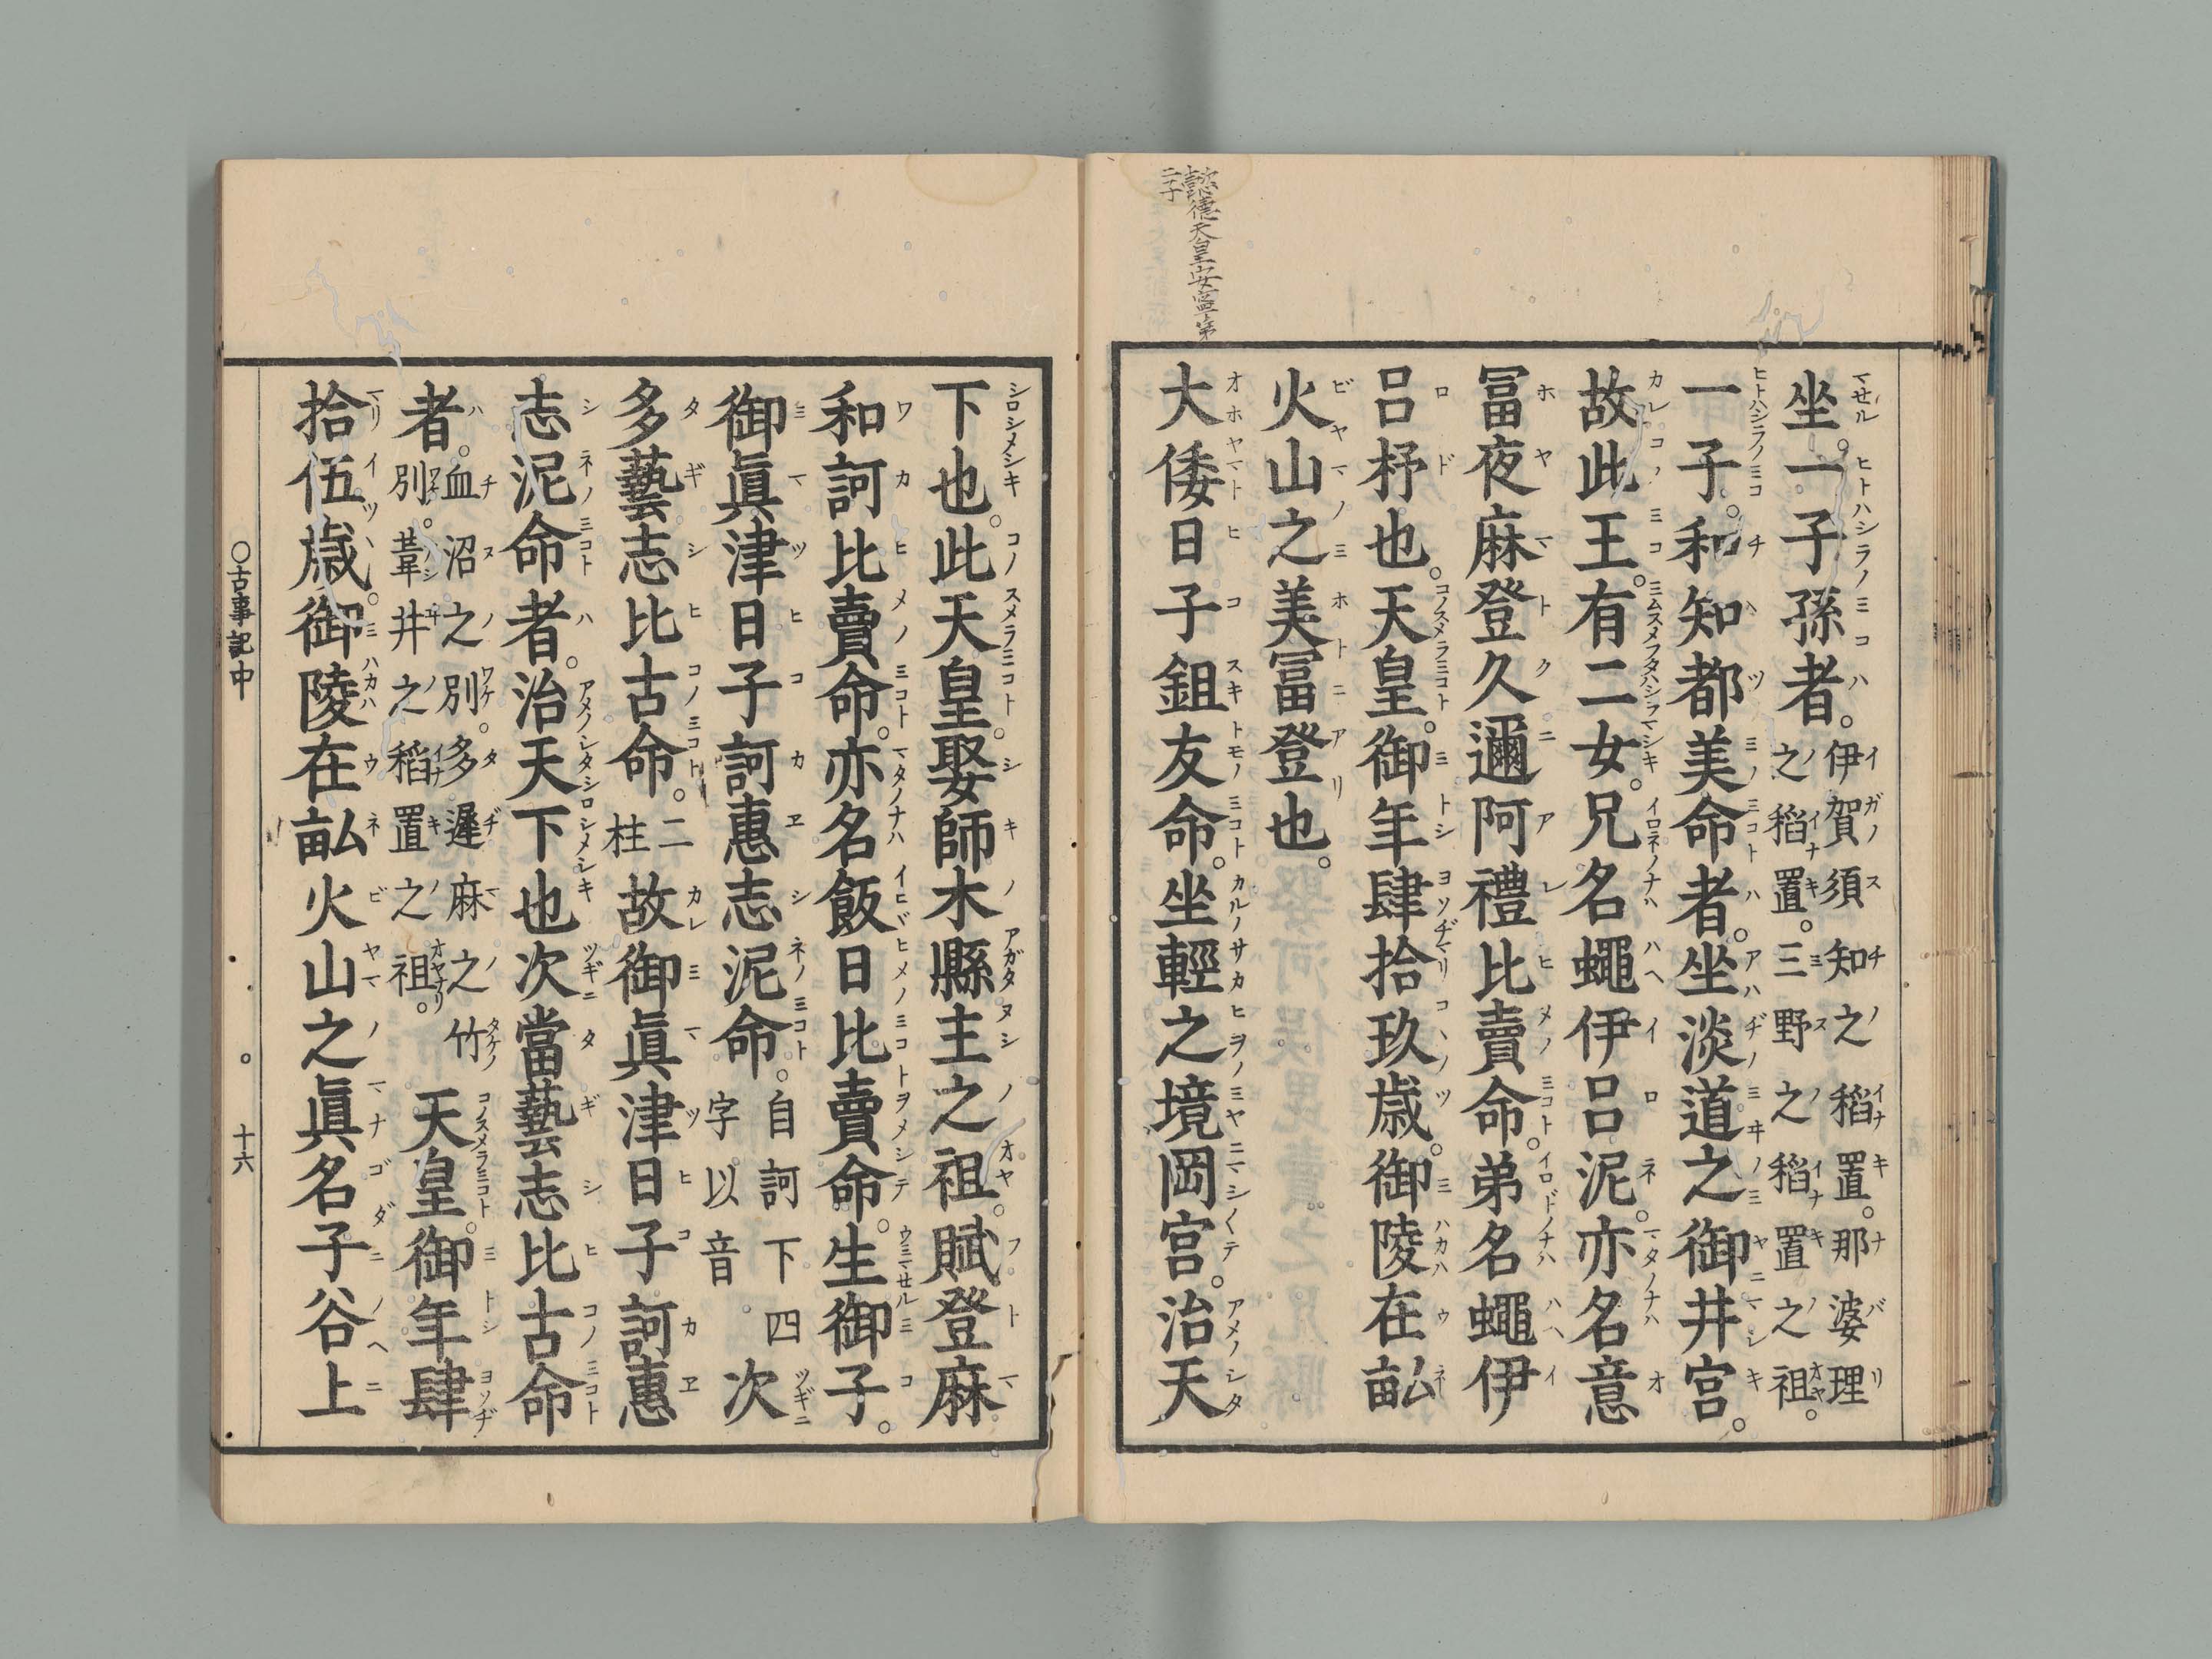 懿德天皇安寧第
二子
坐。一子孫者。伊賀須知之稻置。那婆理之稻置。三野之稻置之祖。
一子。和知都美命者。坐淡道之御井宮。
故此王。有二女。兄名蠅伊呂泥。亦名意
冨夜麻登久邇阿禮比賣命。弟名蠅伊
呂杼也。天皇。御年肆拾玖歳。御陵在畝
火山之美冨登也。
大倭日子鉏友命。坐輕之境岡宮。治天
下也。此天皇。娶師木縣主之祖。賦登麻
和訶比賣命。亦名飯日比賣命。生御子。
御眞津日子訶惠志泥命。自訶下四字以音。次
多藝志比古命。二柱故御眞津日子訶惠
志泥命者。治天下也次當藝志比古命
者。血沼之別。多遲麻之竹別。葦井之稻置之祖。天皇。御年肆
拾伍歳。御陵在畝火山之眞名子谷上
○古事記中 十六